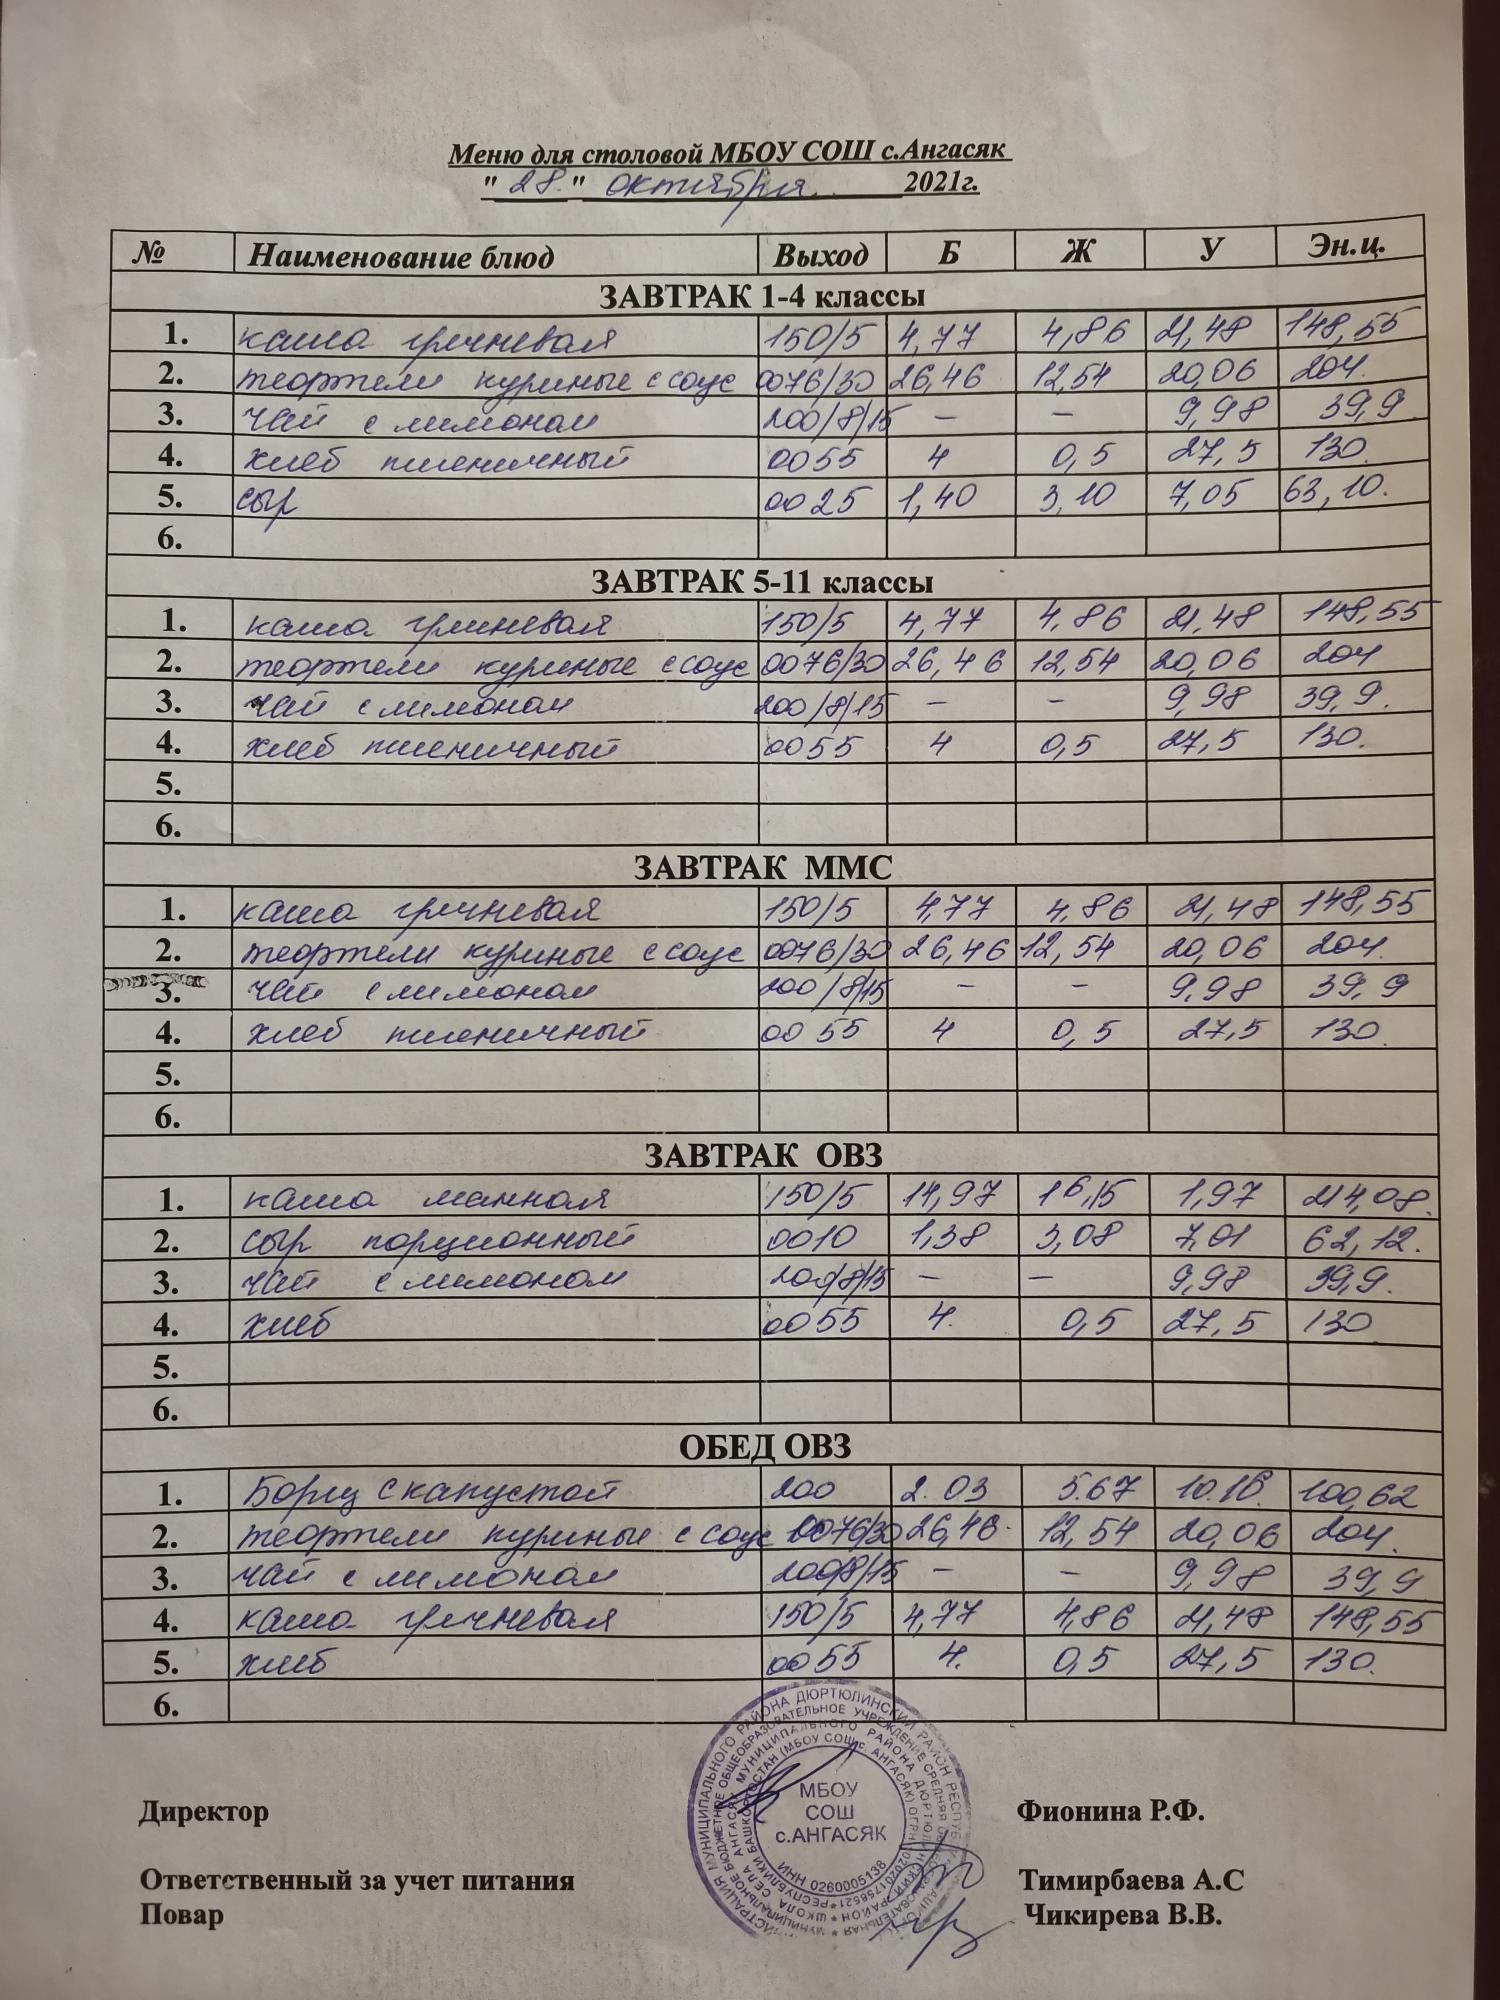 Меню для столовой МБОУ СОШ с.Ангасяк
"28." октября 2021г.
№ Наименование блюд Выход Б Ж У Эн.ц.
ЗАВТРАК 1-4 классы
1. каша гречневая 150/5 4,77 4,86 21,48 148,55
2. теортели куриные с соус 0076/30 26,46 12,54 20,06 204.
3. чай с лимоном 200/8/15 – – 9,98 39,9
4. хлеб пшеничный 0055 4 0,5 27,5 130.
5. сыр 0025 1,40 3,10 7,05 63,10.
6.
ЗАВТРАК 5-11 классы
1. каша гречневая 150/5 4,77 4,86 21,48 148,55
2. теортели куриные с соус 0076/30 26,46 12,54 20,06 204
3. чай с лимоном 200/8/15 – – 9,98 39,9.
4. хлеб пшеничный 0055 4 0,5 27,5 130.
5.
6.
ЗАВТРАК ММС
1. каша гречневая 150/5 4,77 4,86 21,48 148,55
2. теортели куриные с соус 0076/30 26,46 12,54 20,06 204.
3. чай с лимоном 200/8/15 – – 9,98 39,9
4. хлеб пшеничный 0055 4 0,5 27,5 130.
5.
6.
ЗАВТРАК ОВЗ
1. каша манная 150/5 14,97 16,15 1,97 214,08.
2. сыр порционный 0010 1,38 3,08 7,01 62,12.
3. чай с лимоном 200/8/15 – – 9,98 39,9.
4. хлеб 0055 4. 0,5 27,5 130
5.
6.
ОБЕД ОВЗ
1. Борщ с капустой 200 2.03 5.67 10.16. 100,62
2. теортели куриные с соус 0076/30 26,46. 12,54 20,06 204.
3. чай с лимоном 200/8/15 – – 9,98 39,9
4. каша гречневая 150/5 4,77 4,86 21,48 148,55
5. хлеб 0055 4. 0,5 27,5 130.
6.
МБОУ
СОШ
с.АНГАСЯК
ИНН 0260005138
Директор Фионина Р.Ф.
Ответственный за учет питания Тимирбаева А.С
Повар Чикирева В.В.